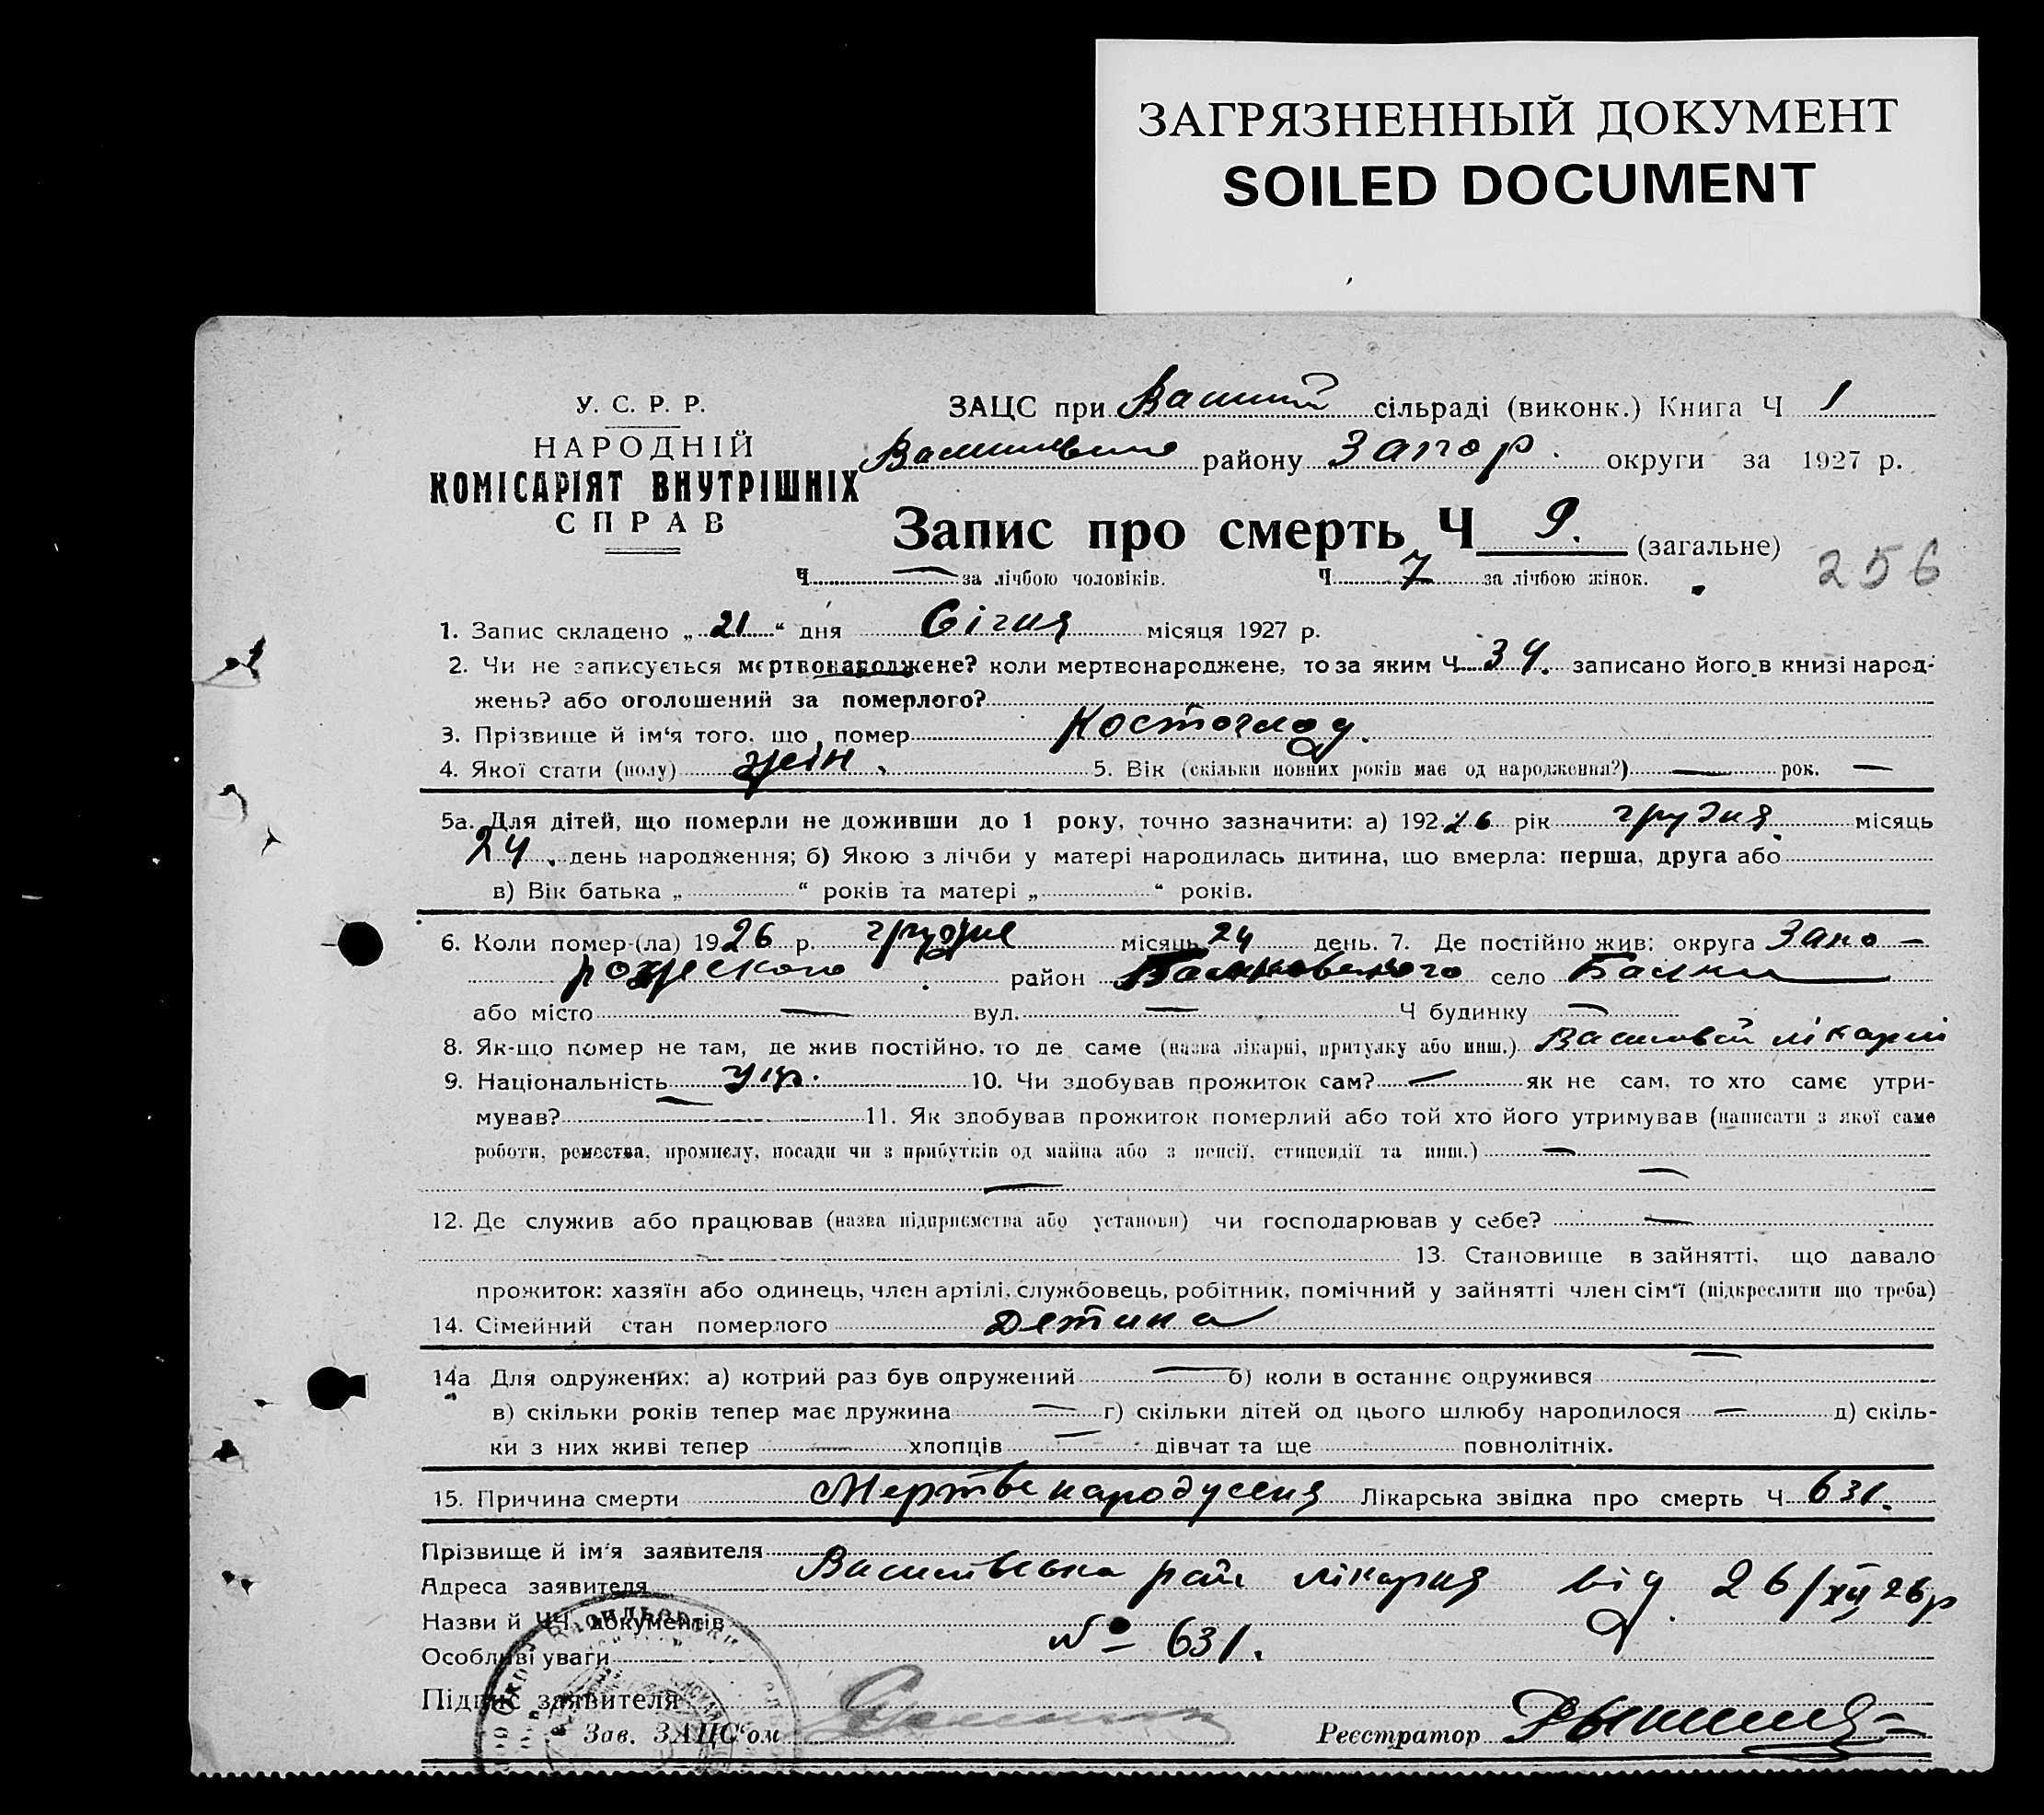 ЗАГРЯЗНЕННЫЙ ДОКУМЕНТ
SOILED DOCUMENT
У. С. Р. Р.
НАРОДНІЙ
КОМІСАРІЯТ ВНУТРІШНІХ
СПРАВ
ЗАЦС при сільраді (виконк.) Книга Ч 1
району Запор. округи за 1927 р.
Запис про смерть Ч 9. (загальне)
256
Ч — за лічбою чоловіків. Ч 7 за лічбою жінок.
1. Запис складено „21“ дня Січня місяця 1927 р.
2. Чи не записується мертвонароджене? коли мертвонароджене, то за яким Ч 34. записано його в книзі народ-
жень? або оголошений за померлого?
3. Прізвище й ім‘я того, що помер Костоглод.
4. Якої стати (полу) жін. 5. Вік (скільки повних років має од народження?) — рок. —
5а. Для дітей, що померли не доживши до 1 року, точно зазначити: а) 192 26 рік грудня місяць
24. день народження; б) Якою з лічби у матері народилась дитина, що вмерла: перша, друга або
в) Вік батька „ “ років та матері „ “ років.
6. Коли помер-(ла) 1926 р. грудня місяць 24 день. 7. Де постійно жив: округа Запо-
рожского район село Балки
або місто — вул. — Ч будинку —
8. Як-що помер не там, де жив постійно, то де саме (назва лікарні, притулку або инш.) лікарні
9. Національність укр. 10. Чи здобував прожиток сам? — як не сам, то хто саме утри-
мував? — 11. Як здобував прожиток померлий або той хто його утримував (написати з якої саме
роботи, ремества, промислу, посади чи з прибутків од майна або з пенсії, стипендії та инш.) —
—
12. Де служив або працював (назва підприємства або установи) чи господарював у себе? —
13. Становище в зайнятті, що давало
прожиток: хазяїн або одинець, член артілі, службовець, робітник, помічний у зайнятті член сім‘ї (підкреслити що треба)
14. Сімейний стан померлого Детина
14а Для одружених: а) котрий раз був одружений — б) коли в останнє одружився —
в) скільки років тепер має дружина — г) скільки дітей од цього шлюбу народилося — д) скіль-
ки з них живі тепер — хлопців — дівчат та ще повнолітніх.
15. Причина смерти Лікарська звідка про смерть Ч 631.
Прізвище й ім‘я заявителя
Адреса заявителя Василівська рай лікарня від 26/XII 26р
Назви й ЧЧ документів
Особливі уваги № 631.
Підпис заявителя
Зав. ЗАЦС‘ом Реєстратор